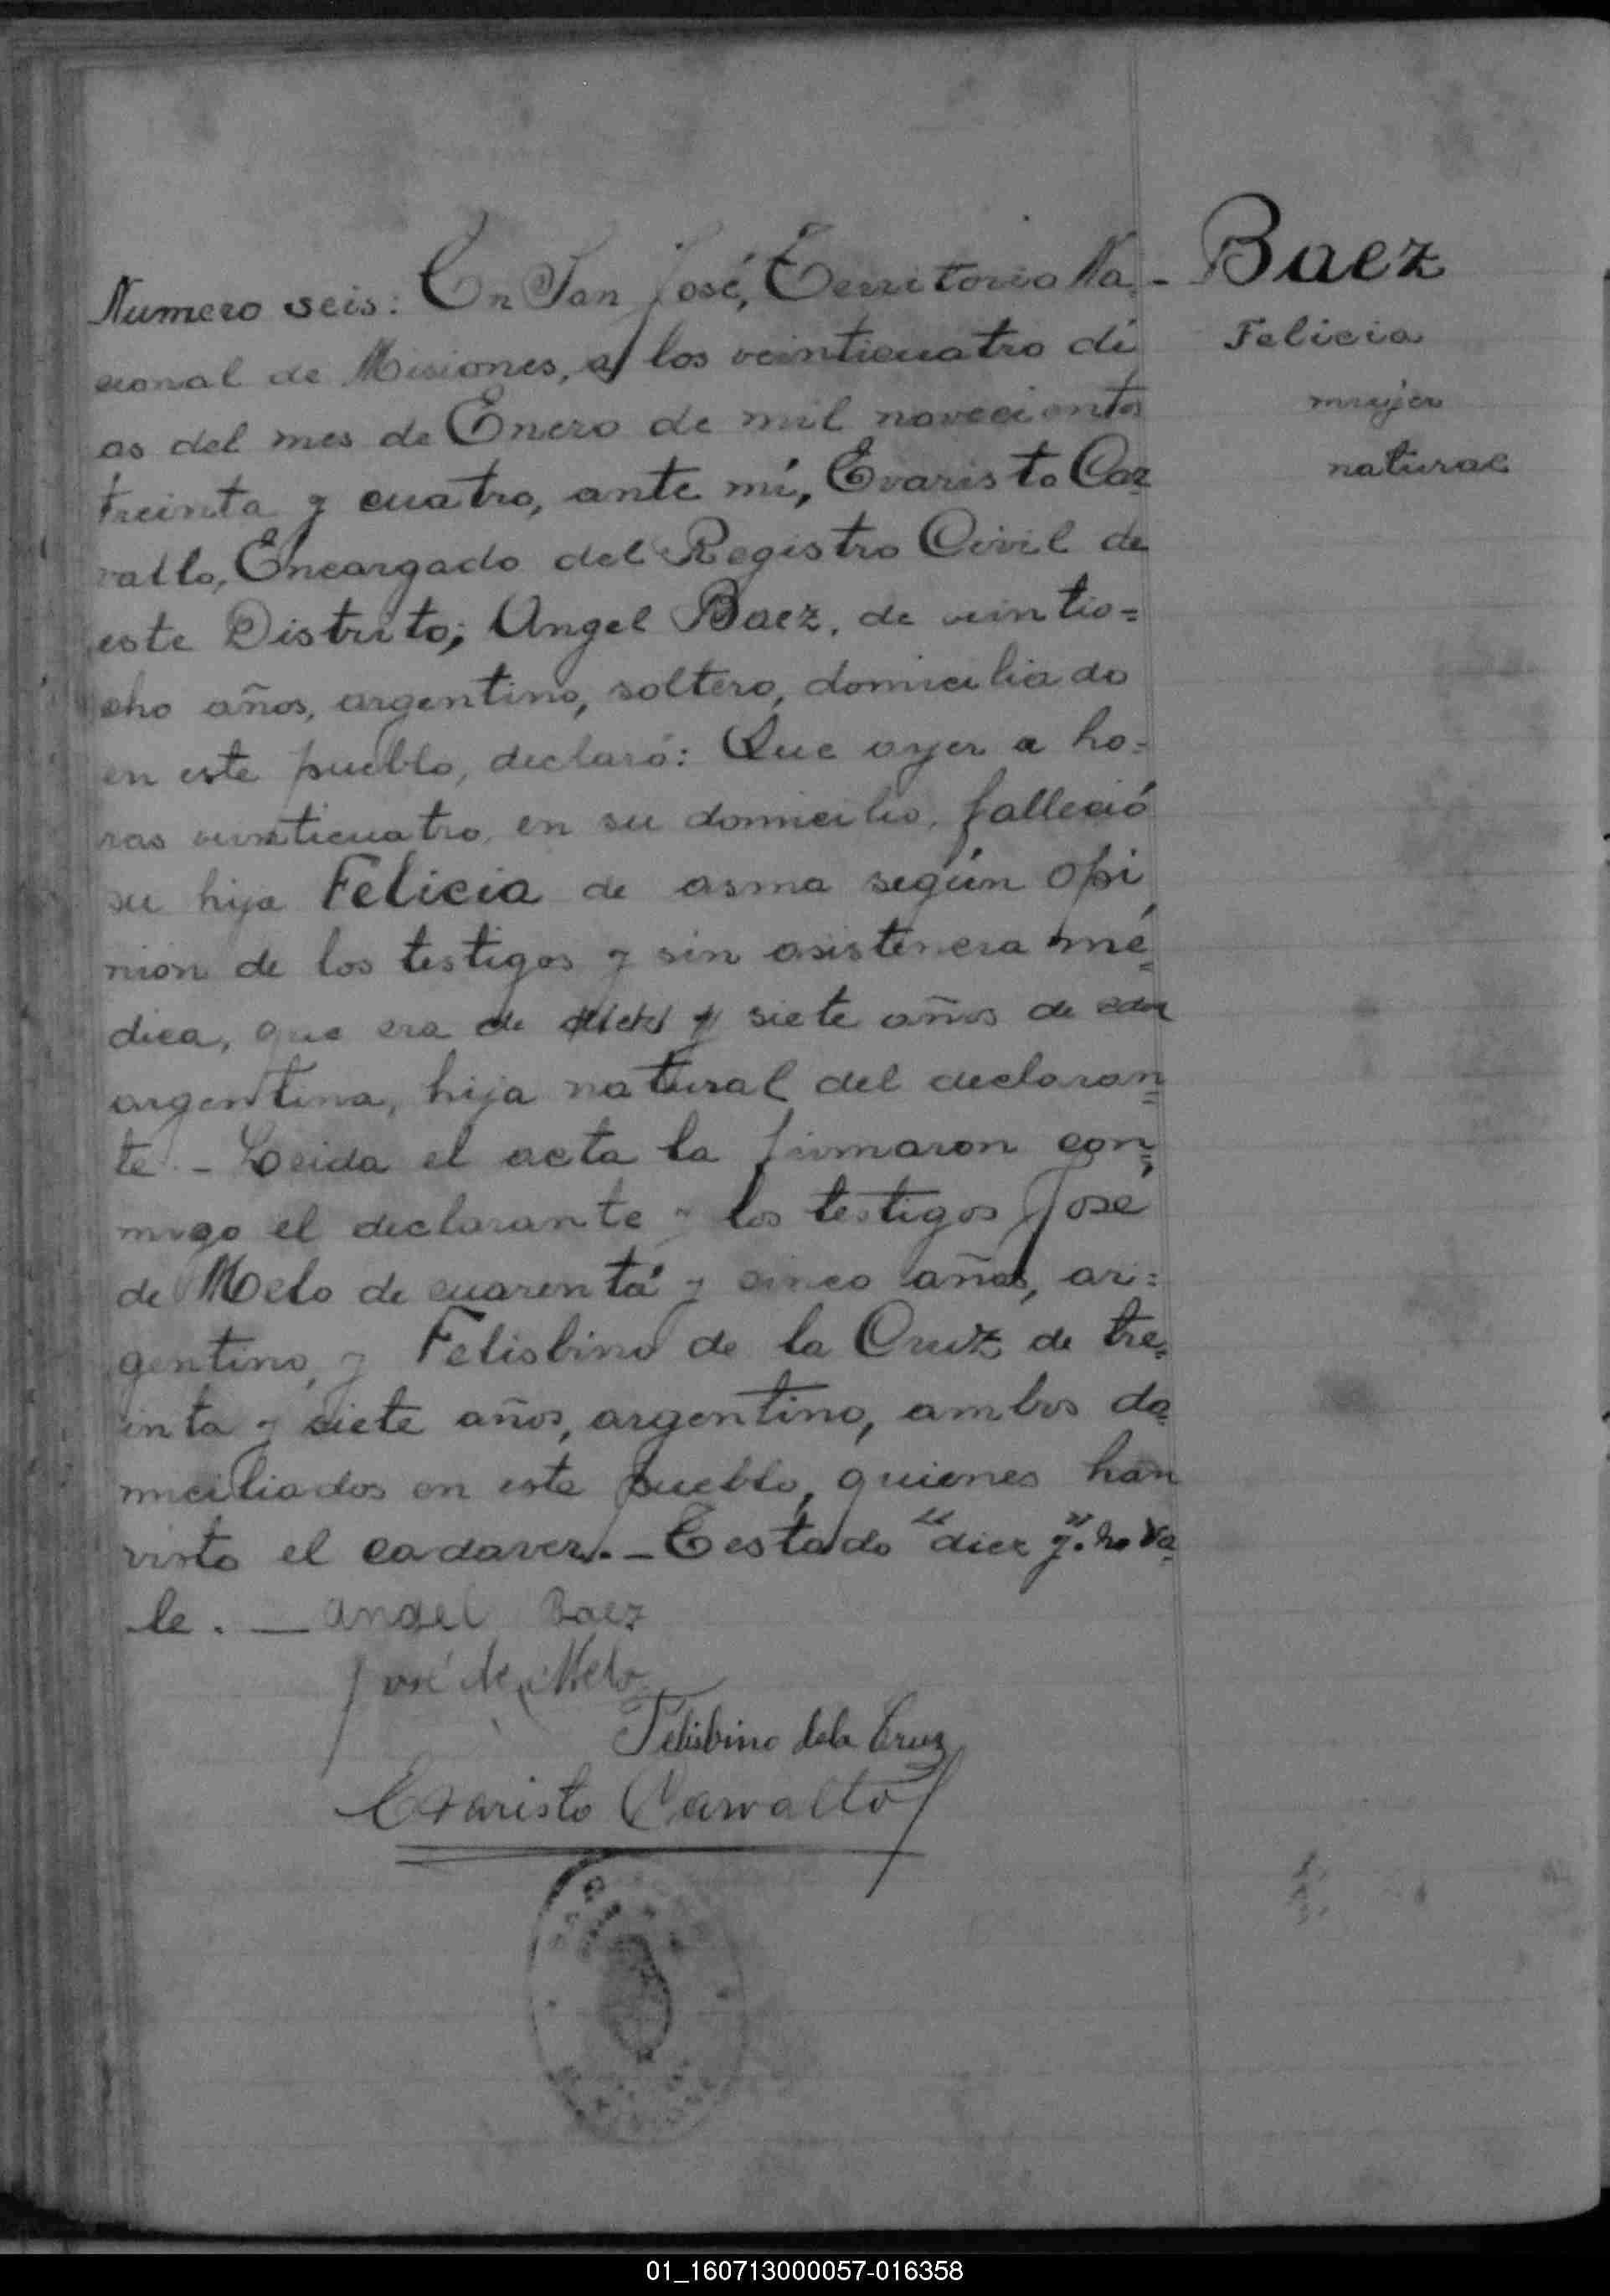 Baez
Felicia
mujer
natural
Numero seis: En San José, Territorio Na-
cional de Misiones, a los veinticuatro di
as del mes de Enero de mil novecientos
treinta y cuatro, ante mí, Evaristo Car
vallo, Encargado del Registro Civil de
este Distrito; Angel Baez, de veintio=
cho años, argentino, soltero, domiciliado
en este pueblo, declaró: Que ayer a ho=
ras veinticuatro, en su domicilio, falleció
su hija Felicia de asma según opi
nion de los testigos y sin asistencia mé=
dica, que era de diez y siete años de edad
argentina, hija natural del declaran=
te. - Leida el acta la firmaron con=
migo el declarante y los testigos José
de Melo de cuarenta y cinco años, ar=
gentino, y Felisbino de la Cruz de tre=
inta y siete años, argentino, ambos do=
miciliados en este pueblo, quienes han
visto el cadaver. - Testado "diez y". no va=
le. — Angel Baez
José de Melo
Felisbino dela Cruz
Evaristo Carvallo
01_160713000057-016358